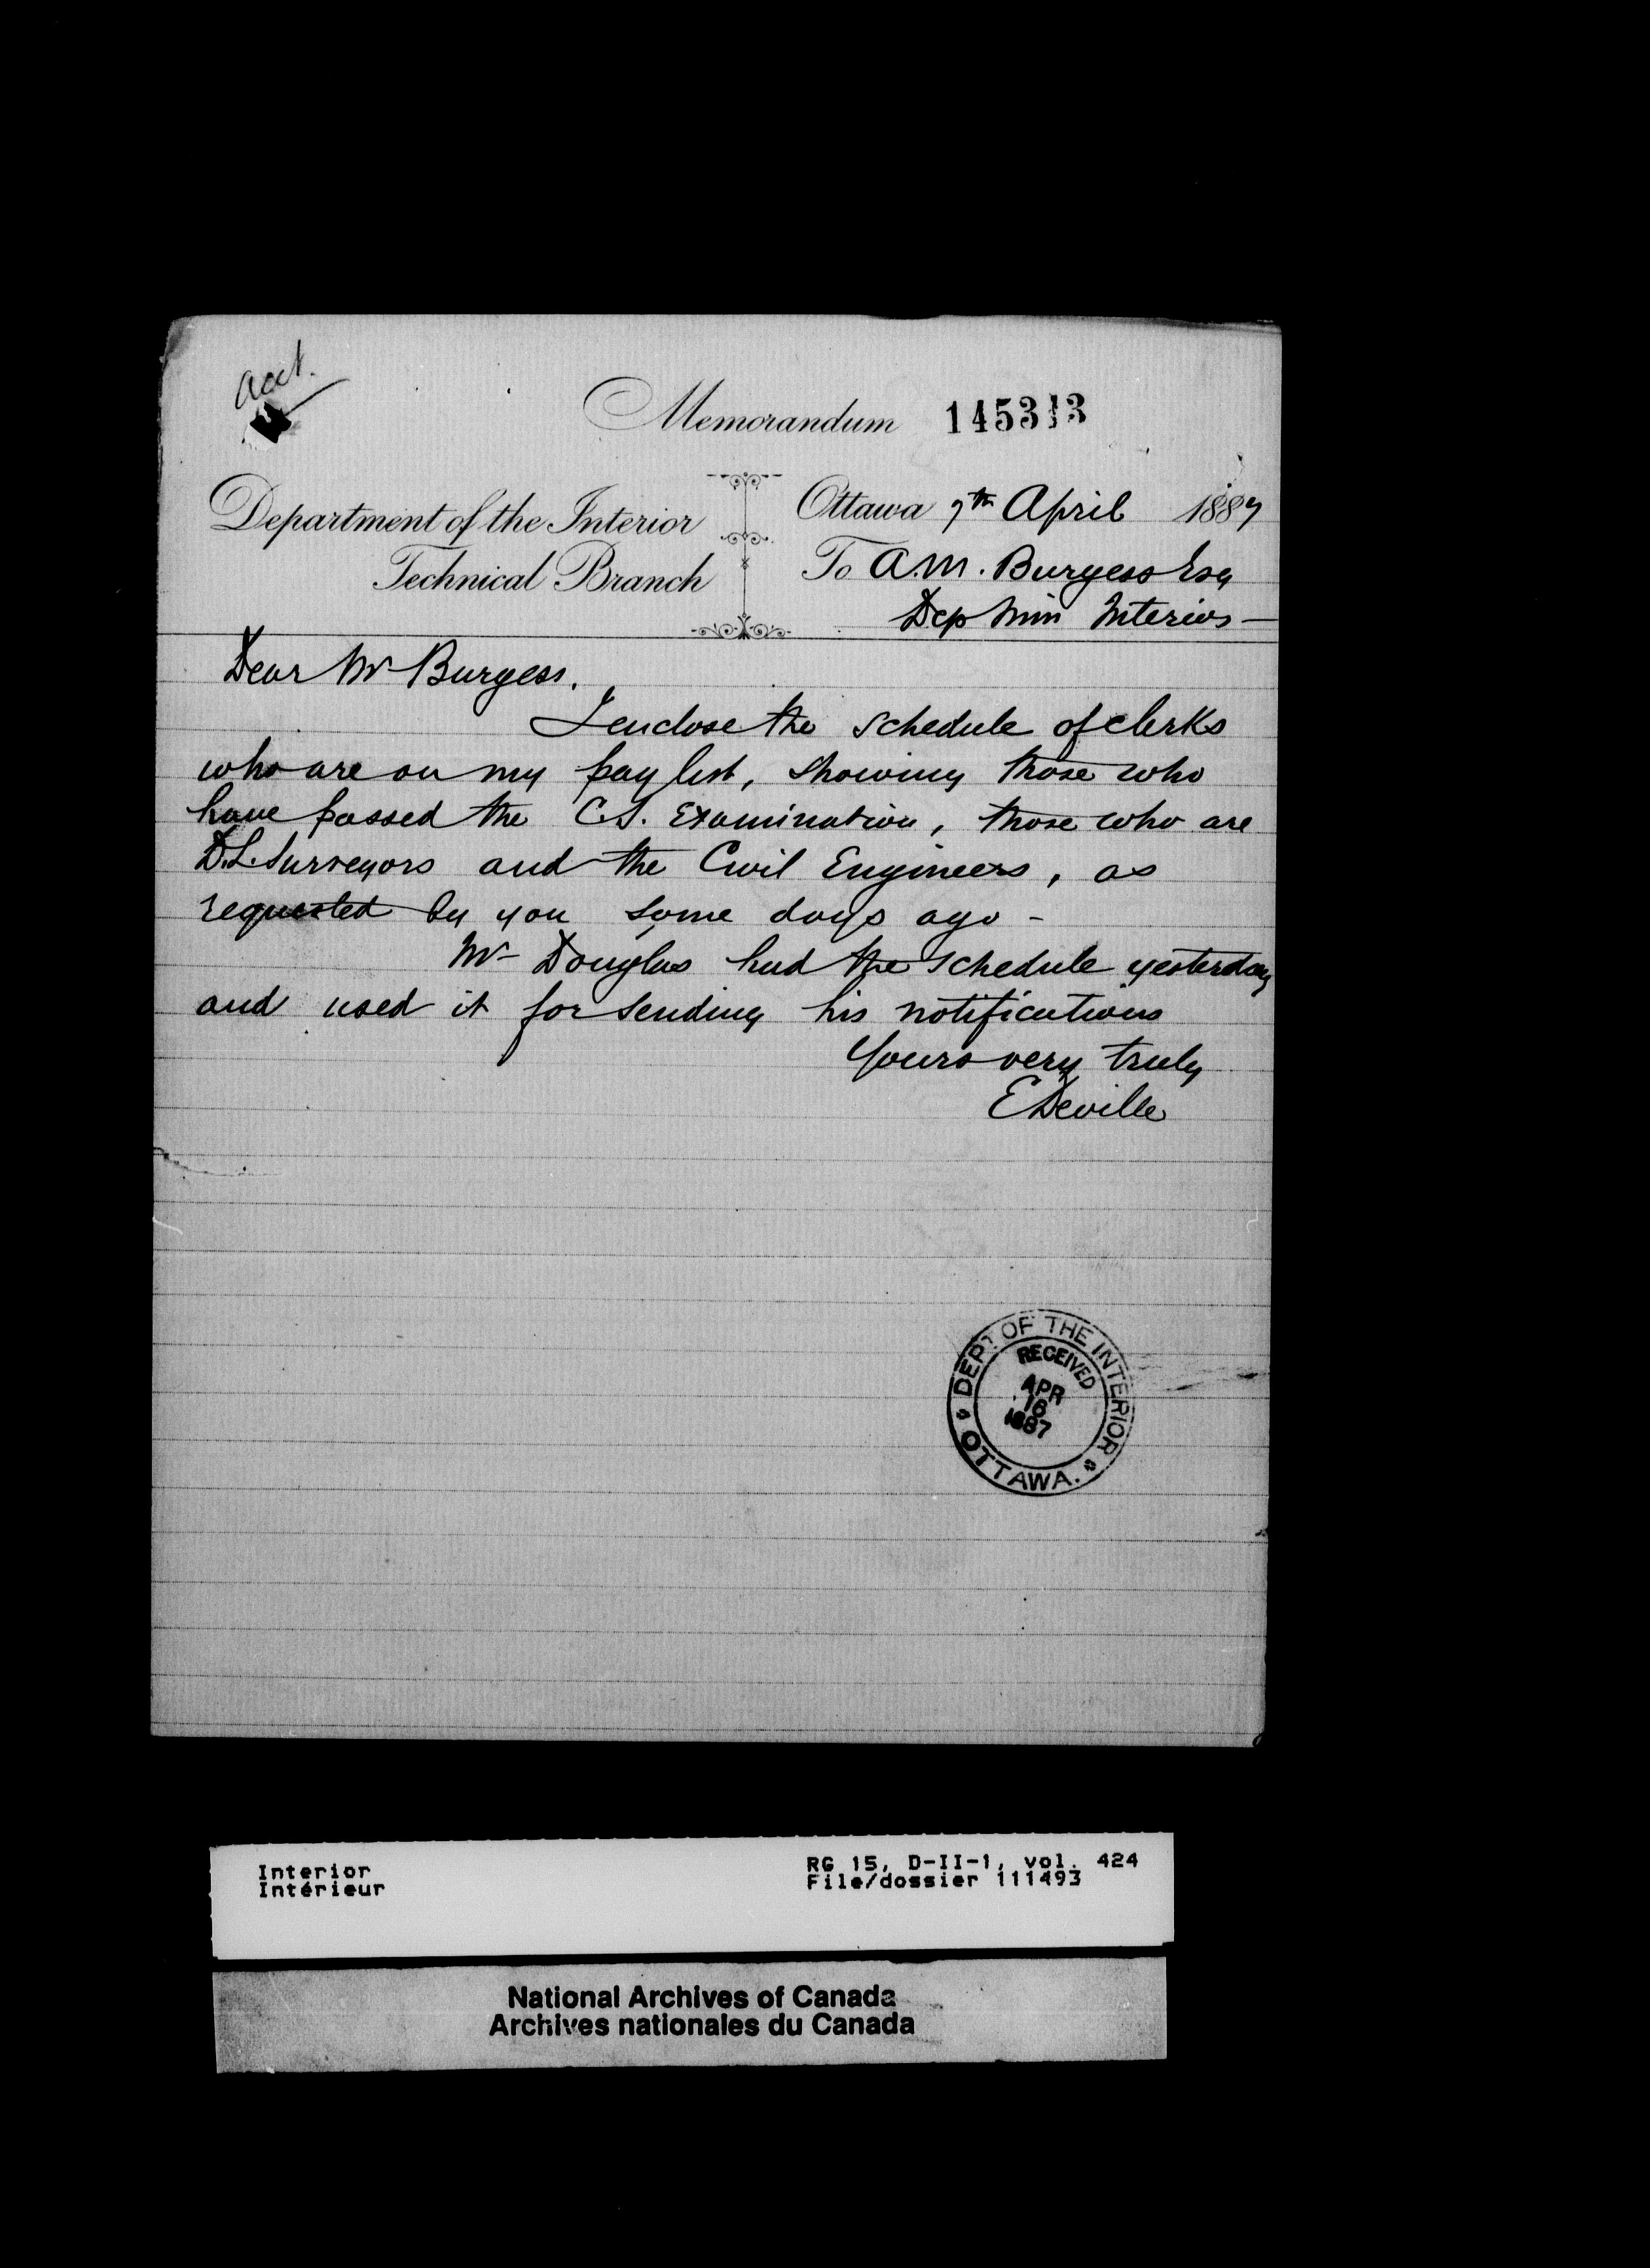 acct.
Memorandum 145313
Department of the Interior
Technical Branch
Ottawa 7th April 1887
To A.M. Burgess Esq
Dep Min Interior —
Dear Mr Burgess,
I enclose the schedule of clerks
who are on my pay list, showing those who
have passed the C.S. Examination, those who are
D.L. Surveyors and the Civil Engineers, as
requested by you some days ago —
Mr Douglas had the schedule yesterday
and used it for sending his notifications
Yours very truly
E Deville
DEPT OF THE INTERIOR
RECEIVED
APR
16
1887
OTTAWA.
Interior
Intérieur
RG 15, D-II-1, vol. 424
File/dossier 111493
National Archives of Canada
Archives nationales du Canada